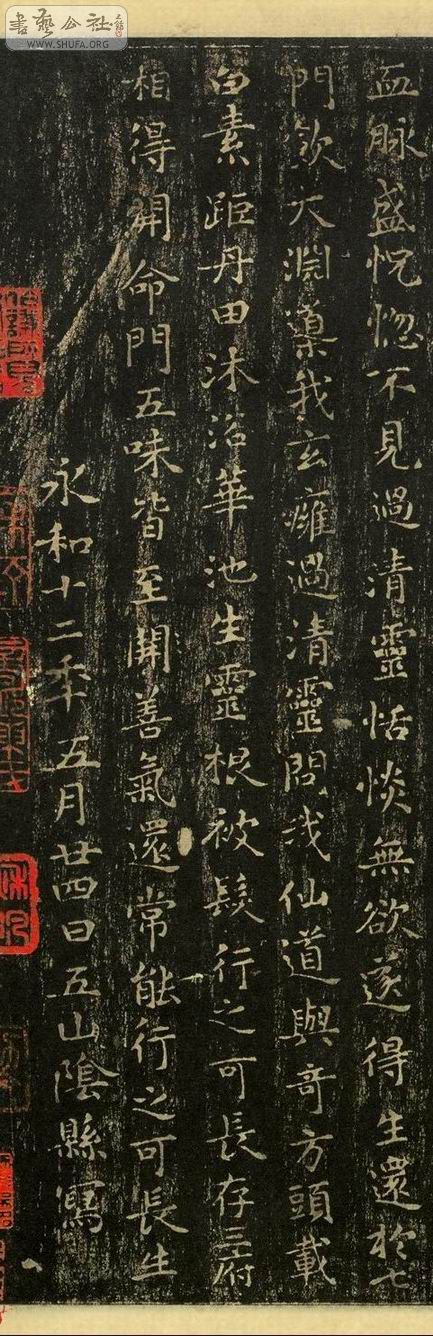 血脉盛恍惚不見過清靈恬惔無欲遂得生還於七
門飲大淵導我玄癰過清靈問我仙道與奇方頭載
白素距丹田沐浴華池生靈根被髮行之可長存三府
相得開命門五味皆至開善氣還常能行之可長生
永和十二年五月廿四日五山陰縣寫
書藝公社
WWW.SHUFA.ORG